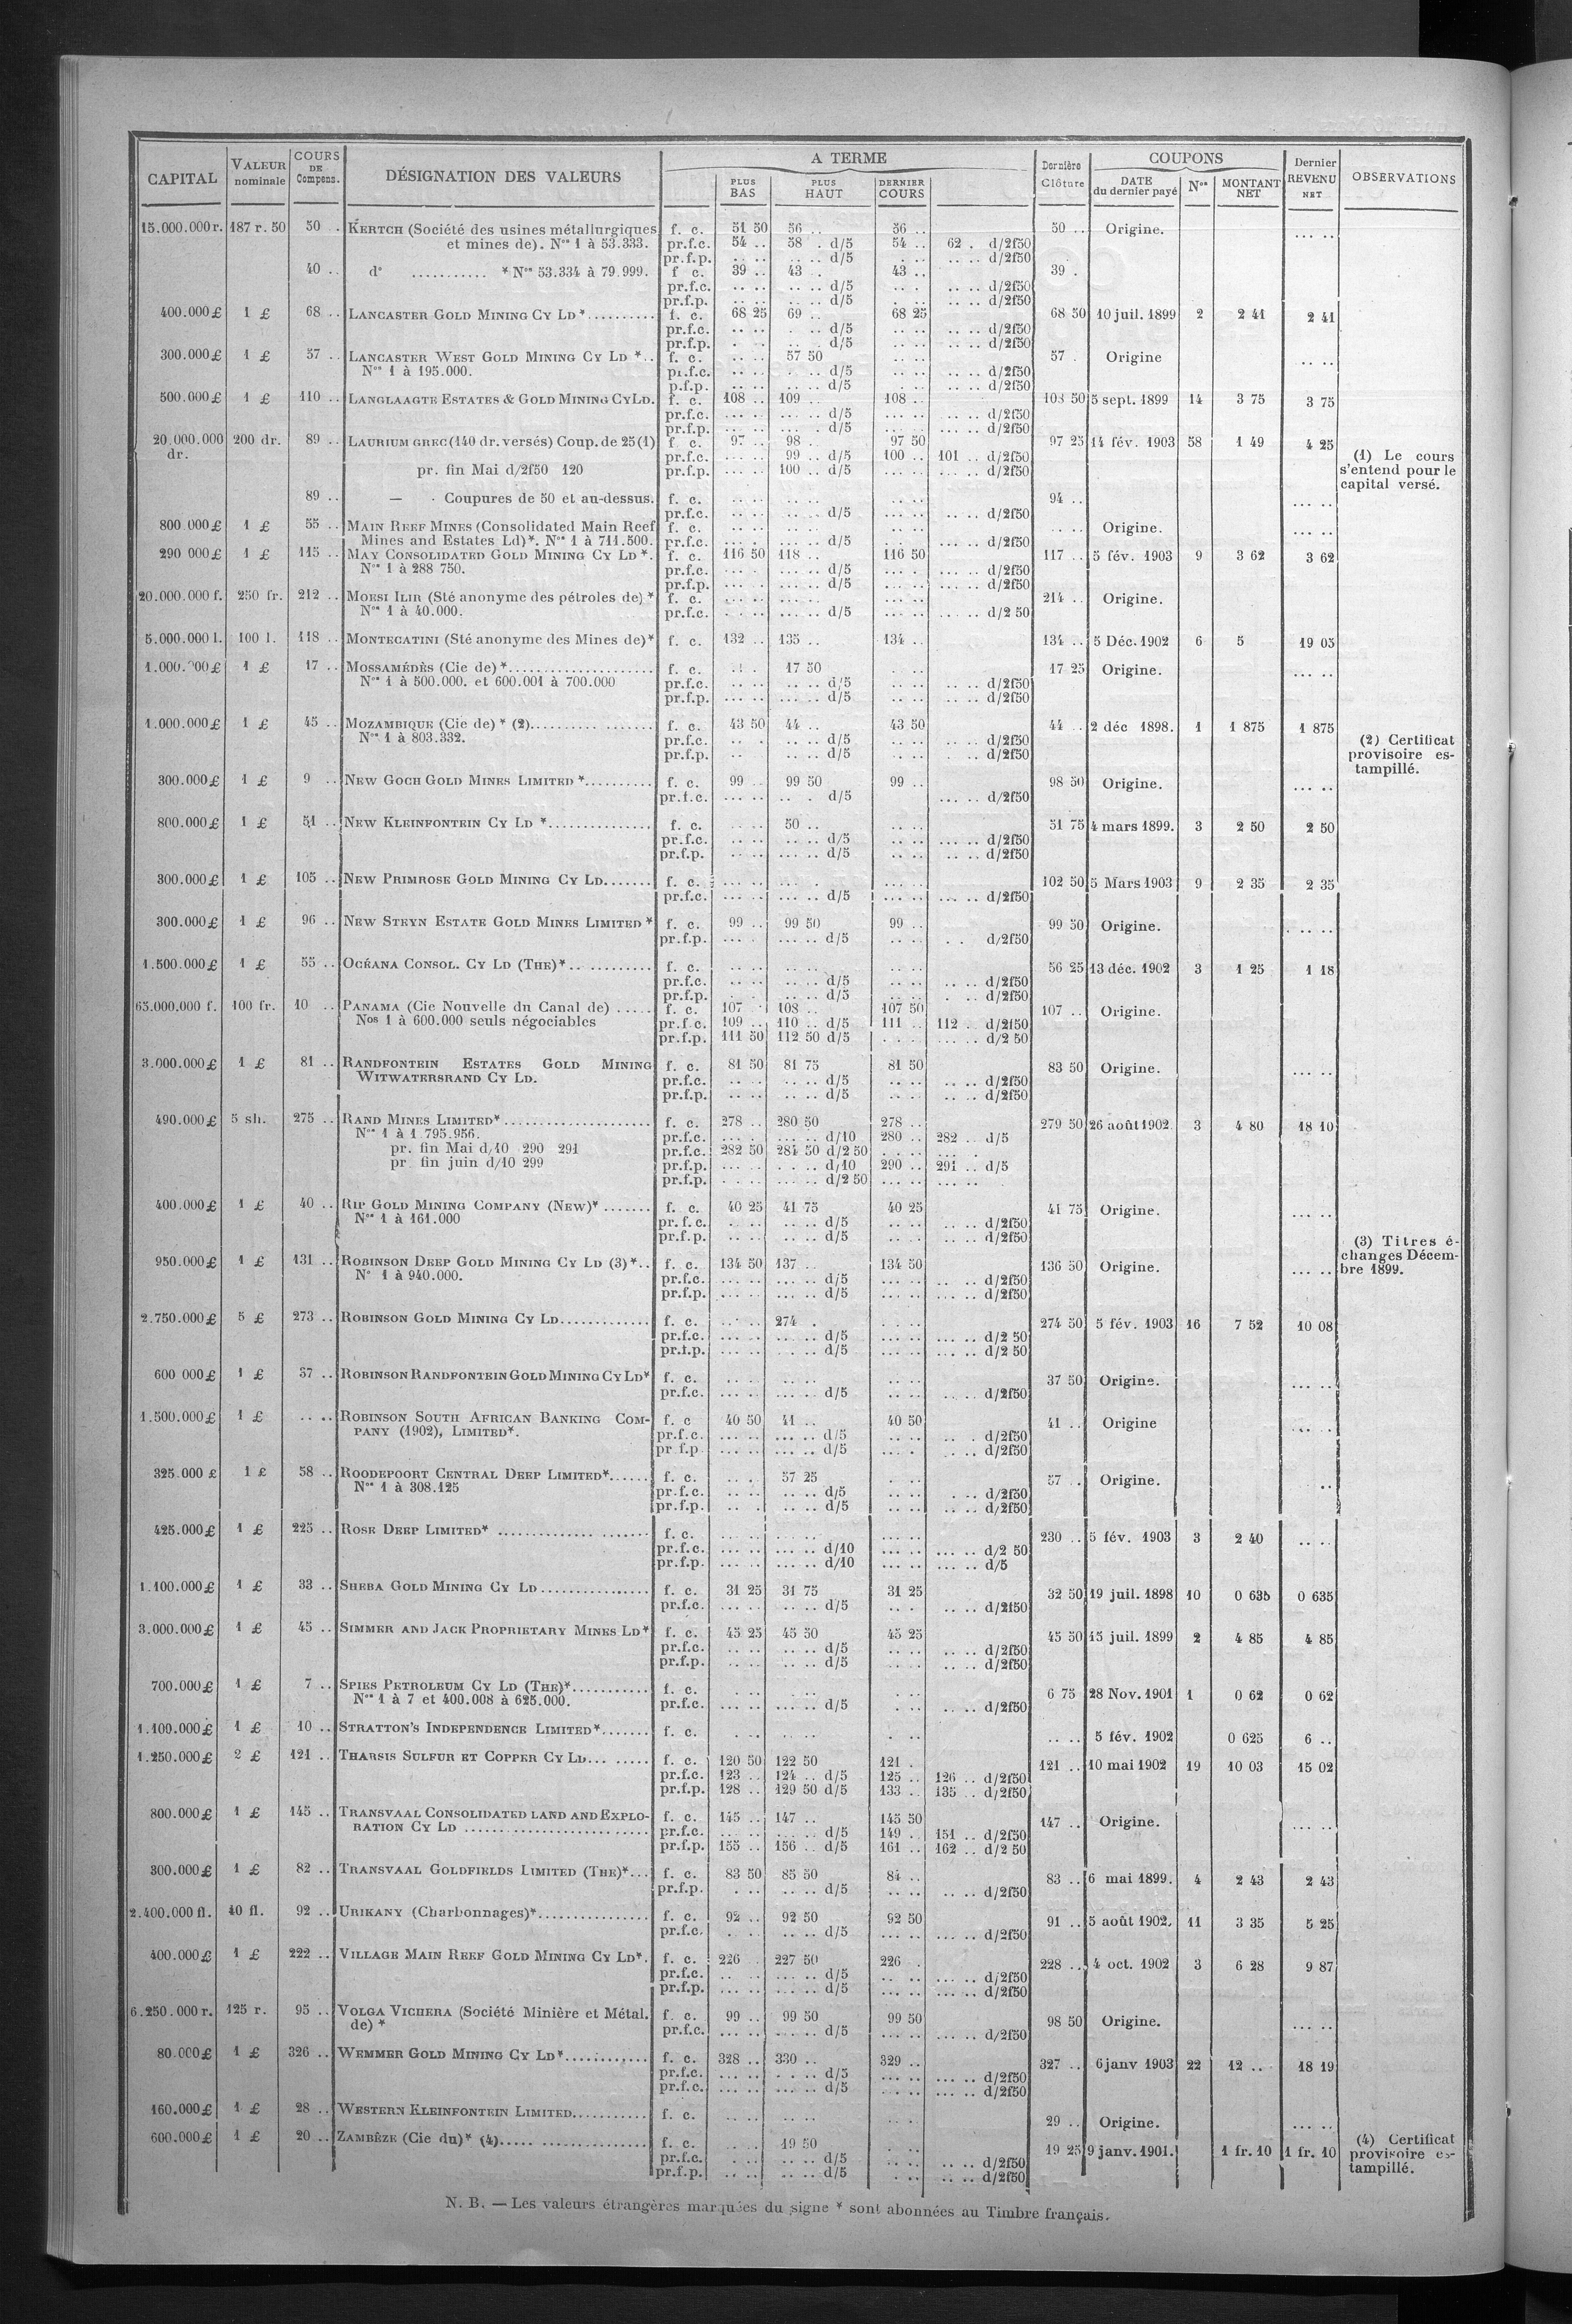 CAPITAL | VALEUR nominale | COURS DE Compens. | DÉSIGNATION DES VALEURS | A TERME | PLUS BAS | PLUS HAUT | DERNIER COURS | Dernière Clôture | COUPONS | DATE du dernier payé | Nos | MONTANT NET | Dernier REVENU NET | OBSERVATIONS
15.000.000r. 187 r. 50 50 . KERTCH (Société des usines métallurgiques f. c. 51 50 56 .. 56 .. 50 .. Origine. ... ..
et mines de). Nos 1 à 53.333. pr.f.c. 54 .. 58 . d/5 54 .. 62 . d/2f50
pr.f.p. .. .. .. .. d/5 . .. .. .. d/2f50
40 .. d° ........... * Nos 53.334 à 79.999. f c. 39 .. 43 . 43 .. 39 .
pr.f.c. .. .. .. .. d/5 .. . .. .. d/2f50
pr.f.p. .. .. .. .. d/5 . .. .. .. d/2f50
400.000£ 1 £ 68 .. LANCASTER GOLD MINING CY LD *.......... f. c. 68 25 69 .. 68 25 68 50 10 juil. 1899 2 2 41 2 41
pr.f.c. .. .. . .. d/5 .. .. .. .. d/2f50
pr.f.p. . .. .. .. d/5 .. .. .. .. d/2f50
300.000£ 1 £ 57 .. LANCASTER WEST GOLD MINING CY LD *.. f. c. .. .. 57 50 .. .. 57 . Origine .. ..
Nos 1 à 195.000. pr.f.c. .. .. . .. d/5 .. .. .. .. d/2f50
p.f.p. .. .. .. .. d/5 . .. .. .. d/2f50
500.000£ 1 £ 110 .. LANGLAAGTE ESTATES & GOLD MINING CYLD. f. c. 108 .. 109 .. 108 .. 108 50 5 sept. 1899 14 3 75 3 75
pr.f.c. ... .. ... .. d/5 ... .. ... .. d/2f50
pr.f.p. ... .. ... . d/5 ... .. ... .. d/2f50
20.000.000 dr. 200 dr. 89 .. LAURIUM GREC (140 dr. versés) Coup. de 25 (1) f c. 97 .. 98 . 97 50 97 25 14 fév. 1903 58 1 49 4 25
pr.f.c. ... .. 99 .. d/5 100 .. 101 .. d/2f50 (1) Le cours
pr. fin Mai d/2f50 120 pr.f.p. ... .. 100 .. d/5 ... .. ... .. d/2f50 s'entend pour le
capital versé.
89 .. — . Coupures de 50 et au-dessus. f. c. .. .. .. .. .. .. 94 .. ... ..
pr.f.c. .. .. .. .. d/5 .. .. .. .. d/2f50
800.000£ 1 £ 55 .. MAIN REEF MINES (Consolidated Main Reef f. c. .. .. .. .. .. .. .. .. Origine. ... ..
Mines and Estates Ld)*. Nos 1 à 711.500. pr.f.c. .. .. .. .. d/5 . .. .. .. d/2f50
290 000£ 1 £ 115 .. MAY CONSOLIDATED GOLD MINING CY LD *. f. c. 116 50 118 .. 116 50 117 .. 5 fév. 1903 9 3 62 3 62
Nos 1 à 288 750. pr.f.c. ... .. ... .. d/5 ... . ... .. d/2f50
pr.f.p. ... . ... .. d/5 ... .. ... .. d/2f50
20.000.000 f. 250 fr. 212 .. MOESI ILIR (Sté anonyme des pétroles de) * f. c. ... .. ... .. ... .. 214 .. Origine.
Nos 1 à 40.000. pr.f.c. . .. ... .. d/5 ... .. ... .. d/2 50
5.000.000 l. 100 l. 118 .. MONTECATINI (Sté anonyme des Mines de)* f. c. 132 .. 135 .. 134 .. 134 .. 5 Déc. 1902 6 5 19 05
1.000.000£ 1 £ 17 .. MOSSAMÉDÈS (Cie de) *.................... f. c. .. . 17 50 .. .. 17 25 Origine. ... ..
Nos 1 à 500.000. et 600.001 à 700.000 pr.f.c. ... .. .. .. d/5 .. .. .. .. d/2f50
pr.f.p. ... .. ... .. d/5 .. .. .. .. d/2f50
1.000.000£ 1 £ 45 .. MOZAMBIQUE (Cie de) * (2)................. f. c. 43 50 44 .. 43 50 44 .. 2 déc 1898. 1 1 875 1 875
Nos 1 à 803.332. pr.f.c. .. . .. .. d/5 .. .. .. .. d/2f50 (2) Certificat
pr.f.p. .. .. .. .. d/5 .. .. . .. d/2f50 provisoire es-
tampillé.
300.000£ 1 £ 9 .. NEW GOCH GOLD MINES LIMITED *.......... f. c. 99 .. 99 50 99 .. 98 50 Origine. ... ..
pr.f.c. ... .. .. . d/5 ... .. d/2f50
800.000£ 1 £ 51 .. NEW KLEINFONTEIN CY LD *............... f. c. .. .. 50 .. .. .. 51 75 4 mars 1899. 3 2 50 2 50
pr.f.c. .. .. .. .. d/5 .. .. ... .. d/2f50
pr.f.p. .. .. ... .. d/5 .. .. .. .. d/2f50
300.000£ 1 £ 105 .. NEW PRIMROSE GOLD MINING CY LD....... f. c. ... .. ... . ... .. 102 50 5 Mars 1903 9 2 35 2 35
pr.f.c. ... .. ... .. d/5 ... .. ... .. d/2f50
300.000£ 1 £ 96 .. NEW STEYN ESTATE GOLD MINES LIMITED * f. c. 99 .. 99 50 99 .. 99 50 Origine. ... ..
pr.f.p. ... . ... .. d/5 .. .. . . d/2f50
1.500.000£ 1 £ 55 .. OCÉANA CONSOL. CY LD (THE)*.. .......... f. c. .. .. .. .. .. .. 56 25 13 déc. 1902 3 1 25 1 18
pr.f.c. .. .. .. .. d/5 .. .. .. .. d/2f50
pr.f.p. . .. .. .. d/5 .. .. . .. d/2f50
65.000.000 f. 100 fr. 10 .. PANAMA (Cie Nouvelle du Canal de) ..... f. c. 107 . 108 .. 107 50 107 .. Origine.
Nos 1 à 600.000 seuls négociables pr.f.c. 109 .. 110 .. d/5 111 .. 112 .. d/2f50
pr.f.p. 111 50 112 50 d/5 . . . ... .. d/2 50
3.000.000£ 1 £ 81 .. RANDFONTEIN ESTATES GOLD MINING f. c. 81 50 81 75 81 50 83 50 Origine. ... ..
WITWATERSRAND CY LD. pr.f.c. .. .. .. .. d/5 .. .. .. .. d/2f50
pr.f.p. .. .. .. .. d/5 .. .. .. .. d/2f50
490.000£ 5 sh. 275 .. RAND MINES LIMITED*..................... f. c. 278 .. 280 50 278 .. 279 50 26 août 1902. 3 4 80 18 10
Nos 1 à 1.795.956. pr.f.c. ... . ... .. d/10 280 .. 282 .. d/5
pr. fin Mai d/10 290 291 pr.f.c. 282 50 284 50 d/2 50 . .. .. ... .
pr. fin juin d/10 299 pr.f.p. ... .. . .. d/10 290 .. 291 .. d/5
pr.f.p. . .. .. ... .. d/2 50 ... .. ... ..
400.000£ 1 £ 40 .. RIP GOLD MINING COMPANY (NEW)* ....... f. c. 40 25 41 75 40 25 41 75 Origine. ... ..
Nos 1 à 161.000 pr.f.c. . .. .. .. d/5 .. .. .. .. d/2f50
pr.f.p. .. .. .. .. d/5 .. .. .. .. d/2f50
(3) Titres é-
950.000£ 1 £ 131 .. ROBINSON DEEP GOLD MINING CY LD (3)*.. f. c. 134 50 137 .. 134 50 136 50 Origine. ... .. changes Décem-
N° 1 à 940.000. pr.f.c. ... .. ... .. d/5 ... .. .. .. d/2f50 bre 1899.
pr.f.p. ... .. ... .. d/5 ... .. ... .. d/2f50
2.750.000£ 5 £ 273 .. ROBINSON GOLD MINING CY LD............. f. c. .. .. 274 . . .. . 274 50 5 fév. 1903 16 7 52 10 08
pr.f.c. ... .. ... .. d/5 ... .. ... .. d/2 50
pr.f.p. ... .. .. .. d/5 ... .. ... .. d/2 50
600 000£ 1 £ 37 .. ROBINSON RANDFONTEIN GOLD MINING CY LD* f. c. .. .. .. .. .. .. 37 50 Origine. ... ..
pr.f.c. ... .. ... .. d/5 .. .. .. .. d/2f50
1.500.000£ 1 £ .. .. ROBINSON SOUTH AFRICAN BANKING COM- f. c 40 50 41 .. 40 50 41 .. Origine ... ..
PANY (1902), LIMITED*. pr.f.c. ... .. ... .. d/5 .. .. .. . d/2f50
pr f.p ... .. ... .. d/5 ... . .. .. d/2f50
325.000 £ 1 £ 58 .. ROODEPOORT CENTRAL DEEP LIMITED*...... f. c. .. . 57 25 . .. 57 .. Origine. ..
Nos 1 à 308.125 pr.f.c. .. .. .. .. d/5 .. .. . .. d/2f50
pr.f.p. .. . .. .. d/5 .. .. .. .. d/2f50
425.000£ 1 £ 225 .. ROSE DEEP LIMITED* ...................... f. c. ... .. ... .. ... .. 230 .. 5 fév. 1903 3 2 40 .. ..
pr.f.c. ... .. ... .. d/10 ... .. ... .. d/2 50
pr.f.p. ... .. ... .. d/10 ... .. ... .. d/5
1.100.000£ 1 £ 33 .. SHEBA GOLD MINING CY LD ................ f. c. 31 25 31 75 31 25 32 50 19 juil. 1898 10 0 635 0 635
pr.f.c. ... .. .. .. d/5 .. . .. .. d/2f50
3.000.000£ 1 £ 45 .. SIMMER AND JACK PROPRIETARY MINES LD* f. c. 45 25 45 50 45 25 45 50 15 juil. 1899 2 4 85 4 85
pr.f.c. .. .. .. .. d/5 .. .. .. .. d/2f50
pr.f.p. .. .. .. .. d/5 .. .. .. .. d/2f50
700.000£ 1 £ 7 .. SPIES PETROLEUM CY LD (THE)*........... f. c. . .. .. .. . .. 6 75 28 Nov. 1901 1 0 62 0 62
Nos 1 à 7 et 400.008 à 625.000. pr.f.c. ... .. .. .. d/5 . .. .. .. d/2f50
1.100.000£ 1 £ 10 .. STRATTON'S INDEPENDENCE LIMITED*....... f. c. . .. .. .. . .. .. .. 5 fév. 1902 0 625 6 ..
1.250.000£ 2 £ 121 .. THARSIS SULFUR ET COPPER CY LD... ..... f. c. 120 50 122 50 121 . 121 .. 10 mai 1902 19 10 03 15 02
pr.f.c. 123 .. 124 .. d/5 125 .. 126 .. d/2f50
pr.f.p. 128 .. 129 50 d/5 133 .. 135 .. d/2f50
800.000£ 1 £ 145 .. TRANSVAAL CONSOLIDATED LAND AND EXPLO- f. c. 145 .. 147 .. 145 50 147 .. Origine. ... ..
RATION CY LD .......................... pr.f.c. .. .. ... .. d/5 149 . 151 .. d/2f50
pr.f.p. 155 .. 156 .. d/5 161 .. 162 .. d/2 50
300.000£ 1 £ 82 .. TRANSVAAL GOLDFIELDS LIMITED (THE)*... f. c. 83 50 85 50 84 .. 83 .. 6 mai 1899. 4 2 43 2 43
pr.f.p. . .. .. .. d/5 .. .. .. .. d/2f50
2.400.000 fl. 40 fl. 92 .. URIKANY (Charbonnages)*................ f. c. 92 .. 92 50 92 50 91 .. 5 août 1902. 11 3 35 5 25
pr.f.c. . .. .. .. d/5 ... .. ... .. d/2f50
400.000£ 1 £ 222 .. VILLAGE MAIN REEF GOLD MINING CY LD*. f. c. 226 .. 227 50 226 . 228 .. 4 oct. 1902 3 6 28 9 87
pr.f.c. .. .. ... .. d/5 .. .. ... .. d/2f50
pr.f.p. ... .. ... .. d/5 ... .. ... .. d/2f50
6.250.000 r. 125 r. 95 .. VOLGA VICHERA (Société Minière et Métal. f. c. 99 .. 99 50 99 50 98 50 Origine. ... ..
de) * pr.f.c. ... .. ... .. d/5 ... .. ... .. d/2f50
80.000£ 1 £ 326 .. WEMMER GOLD MINING CY LD*............ f. c. 328 .. 330 .. 329 .. 327 .. 6 janv 1903 22 12 .. 18 19
pr.f.c. ... .. . .. d/5 ... .. ... .. d/2f50
pr.f.c. ... .. ... .. d/5 . .. .. ... .. d/2f50
160.000£ 1 £ 28 .. WESTERN KLEINFONTEIN LIMITED........... f. c. .. .. .. .. .. . 29 .. Origine. ... ..
600.000£ 1 £ 20 .. ZAMBÈZE (Cie du)* (4)..... ................ f. c. .. . 19 50 . .. 19 25 9 janv. 1901. 1 fr. 10 1 fr. 10 (4) Certificat
pr.f.c. .. .. .. .. d/5 .. .. .. .. d/2f50 provisoire es-
pr.f.p. .. .. .. .. d/5 . .. .. .. d/2f50 tampillé.
N. B. — Les valeurs étrangères marquées du signe * sont abonnées au Timbre français.